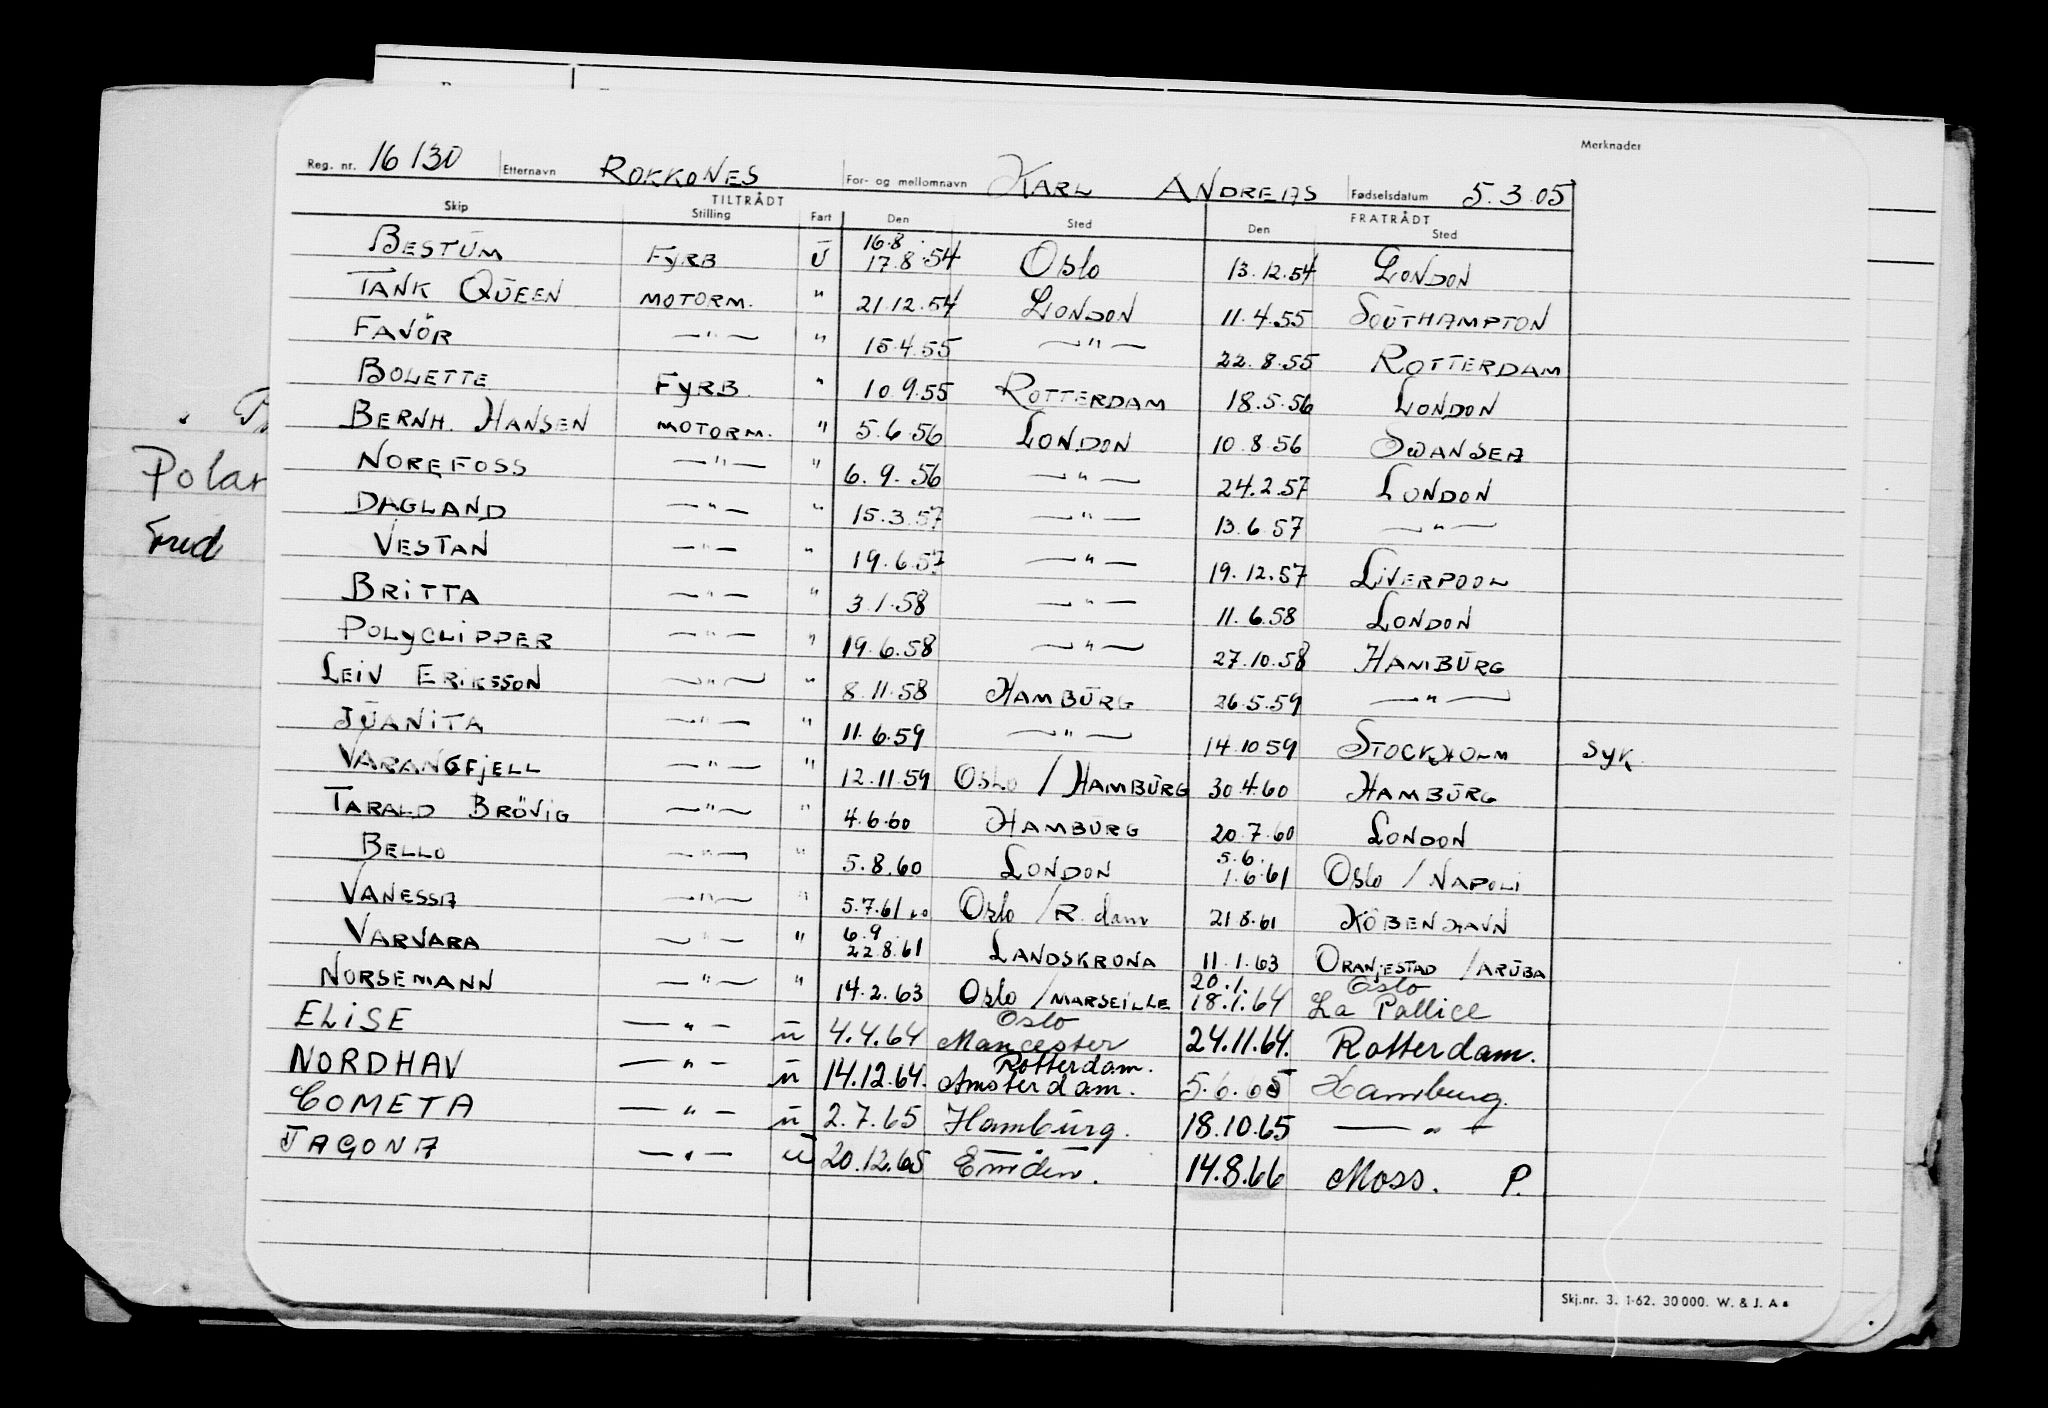 Merknader
Reg. nr. 16130 Etternavn ROKKONES For- og mellomnavn KARL ANDREAS Fødselsdatum 5.3.05
TILTRÅDT FRATRÅDT
Skip Stilling Fart Den Sted Den Sted
BESTUM FYRB Ū 16.8 17.8.54 Oslo 13.12.54 LONDON
TANK QUEEN MOTORM. " 21.12.54 LONDON 11.4.55 SOUTHAMPTON
FAVÖR —"— " 15.4.55 —"— 22.8.55 ROTTERDAM
BOLETTE FYRB. " 10 9.55 ROTTERDAM 18.5.56 LONDON
BERNH. HANSEN MOTORM. " 5.6.56 LONDON 10.8.56 SWANSEA
NOREFOSS —"— " 6.9.56 —"— 24.2.57 LONDON
DAGLAND —"— " 15.3.57 —"— 13.6.57 —"—
VESTAN —"— " 19.6.57 —"— 19.12.57 LIVERPOOL
BRITTA —"— " 3.1.58 —"— 11.6.58 LONDON
POLYCLIPPER —"— " 19.6.58 —"— 27.10.58 HAMBURG
LEIV ERIKSSON —"— " 8.11.58 HAMBURG 26.5.59 —"—
JUANITA —"— " 11.6.59 —"— 14.10 59 STOCKHOLM SYK
VARANGFJELL —"— " 12.11.59 OSLO / HAMBURG 30.4.60 HAMBURG
TARALD BRÖVIG —"— " 4.6.60 HAMBURG 20.7.60 LONDON
BELLO —"— " 5.8.60 LONDON 5.6. 1.6.61 Oslo / NAPOLI
VANESSA —"— " 5.7.61 Oslo / R.dam 21.8.61 KÖBENHAVN
VARVARA —"— " 6.9. 22.8.61 LANDSKRONA 11.1.63 ORANJESTAD / ARUBA
NORSEMANN —"— " 14.2.63 Oslo / MARSEILLE 20.1. 18.1.64 Oslo La Pallice
ELISE —"— ū 4.4.64 Oslo Mancester 24.11.64. Rotterdam.
NORDHAV —"— ū 14.12.64. Rotterdam. Amsterdam. 5.6.65 Hamburg.
COMETA —"— ū 2.7.65 Hamburg. 18.10.65 —"—
JAGONA —"— ū 20.12.65 Emden. 14.8.66 Moss. P.
Polar
Fred
Skj.nr. 3. 1-62. 30 000. W. & J. A s